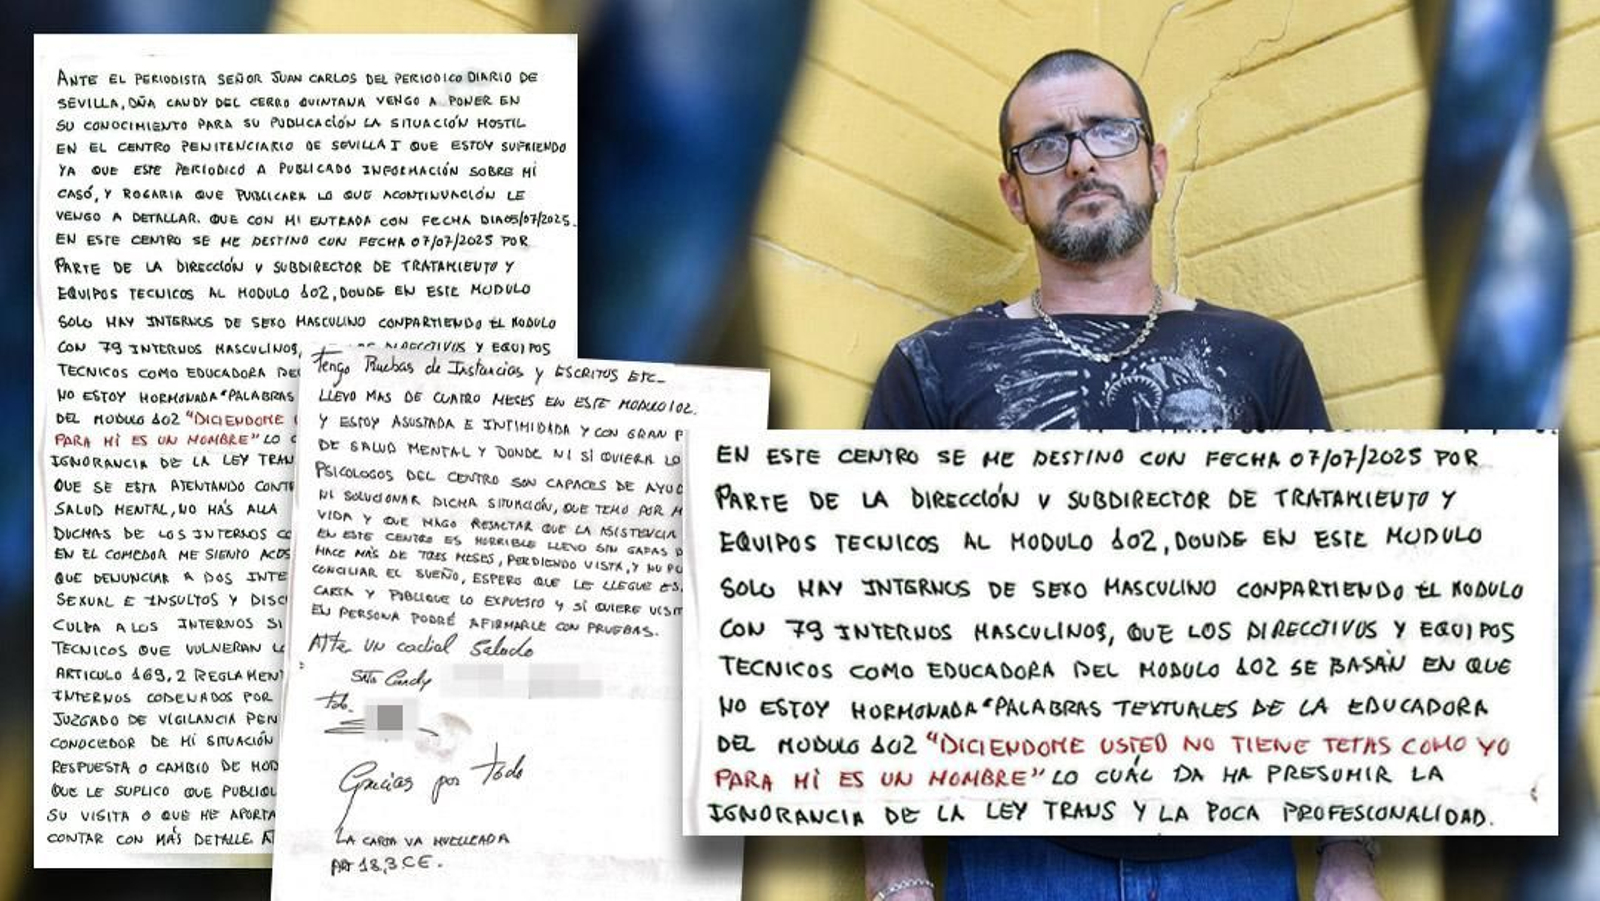 ANTE EL PERIODISTA SEÑOR JUAN CARLOS DEL PERIODICO DIARIO DE
SEVILLA, DÑA CANDY DEL CERRO QUINTANA VENGO A PONER EN
SU CONOCIMIENTO PARA SU PUBLICACIÓN LA SITUACIÓN HOSTIL
EN EL CENTRO PENITENCIARIO DE SEVILLA I QUE ESTOY SUFRIENDO
YA QUE ESTE PERIODICO A PUBLICADO INFORMACIÓN SOBRE MI
CASÓ, Y ROGARIA QUE PUBLICARA LO QUE ACONTINUACIÓN LE
VENGO A DETALLAR. QUE CON MI ENTRADA CON FECHA DIA 05/07/2025.
EN ESTE CENTRO SE ME DESTINO CON FECHA 07/07/2025 POR
PARTE DE LA DIRECCIÓN Y SUBDIRECTOR DE TRATAMIENTO Y
EQUIPOS TECNICOS AL MODULO 102, DONDE EN ESTE MODULO
SOLO HAY INTERNOS DE SEXO MASCULINO CONPARTIENDO EL MODULO
CON 79 INTERNOS MASCULINOS, DIRECCTIVOS Y EQUIPOS
TECNICOS COMO EDUCADORA DE
NO ESTOY HORMONADA "PALABRAS
DEL MODULO 102 "DICIENDOME
PARA MI ES UN HOMBRE" LO
IGNORANCIA DE LA LEY TRAN
QUE SE ESTA ATENTANDO CONT
SALUD MENTAL, NO HÁS ALLA
DUCHAS DE LOS INTERNOS CO
EN EL COMEDOR ME SIENTO ACOS
QUE DENUNCIAR A DOS INTE
SEXUAL E INSULTOS Y DISC
CULPA A LOS INTERNOS SI
TECNICOS QUE VULNERAN L
ARTICULO 169,2 REGLAMEN
INTERNOS CODENADOS POR
JUZGADO DE VIGILANCIA PEN
CONOCEDOR DE MI SITUACIÓN
RESPUESTA O CAMBIO DE MOD
QUE LE SUPLICO QUE PUBLIQU
SU VISITA O QUE HE APORTA
CONTAR CON MÁS DETALLE A
Tengo Pruebas de Instancias y ESCRITOS ETC_
LLEVO MAS DE CUATRO MESES EN ESTE MODULO 102.
Y ESTOY ASUSTADA E INTIMIDADA Y CON GRAN P
DE SALUD MENTAL Y DONDE NI SI QUIERA LO
PSICOLOGOS DEL CENTRO SON CAPACES DE AYUD
NI SOLUCIONAR DICHA SITUACIÓN, QUE TEMO POR M
VIDA Y QUE HAGO RESALTAR QUE LA ASISTENCIA
EN ESTE CENTRO ES HORRIBLE LLEVO SIN GAFAS D
HACE MÁS DE TRES MESES, PERDIENDO VISTA, Y NO PU
CONCILIAR EL SUEÑO, ESPERO QUE LE LLEGUE ES
CARTA Y PUBLIQUE LO EXPUESTO Y SI QUIERE VISIT
EN PERSONA PODRÉ AFIRMARLE CON PRUEBAS.
Atte un codial Saludo
Sña Candy
Fdo.
Gracias por todo
LA CARTA VA HUELLEADA
ART 18,3 C.E.
EN ESTE CENTRO SE ME DESTINO CON FECHA 07/07/2025 POR
PARTE DE LA DIRECCIÓN Y SUBDIRECTOR DE TRATAMIENTO Y
EQUIPOS TECNICOS AL MODULO 102, DONDE EN ESTE MODULO
SOLO HAY INTERNOS DE SEXO MASCULINO CONPARTIENDO EL MODULO
CON 79 INTERNOS MASCULINOS, QUE LOS DIRECCTIVOS Y EQUIPOS
TECNICOS COMO EDUCADORA DEL MODULO 102 SE BASAN EN QUE
NO ESTOY HORMONADA "PALABRAS TEXTUALES DE LA EDUCADORA
DEL MODULO 102 "DICIENDOME USTED NO TIENE TETAS COMO YO
PARA MI ES UN HOMBRE" LO CUÁL DA HA PRESUMIR LA
IGNORANCIA DE LA LEY TRANS Y LA POCA PROFESCIONALIDAD.